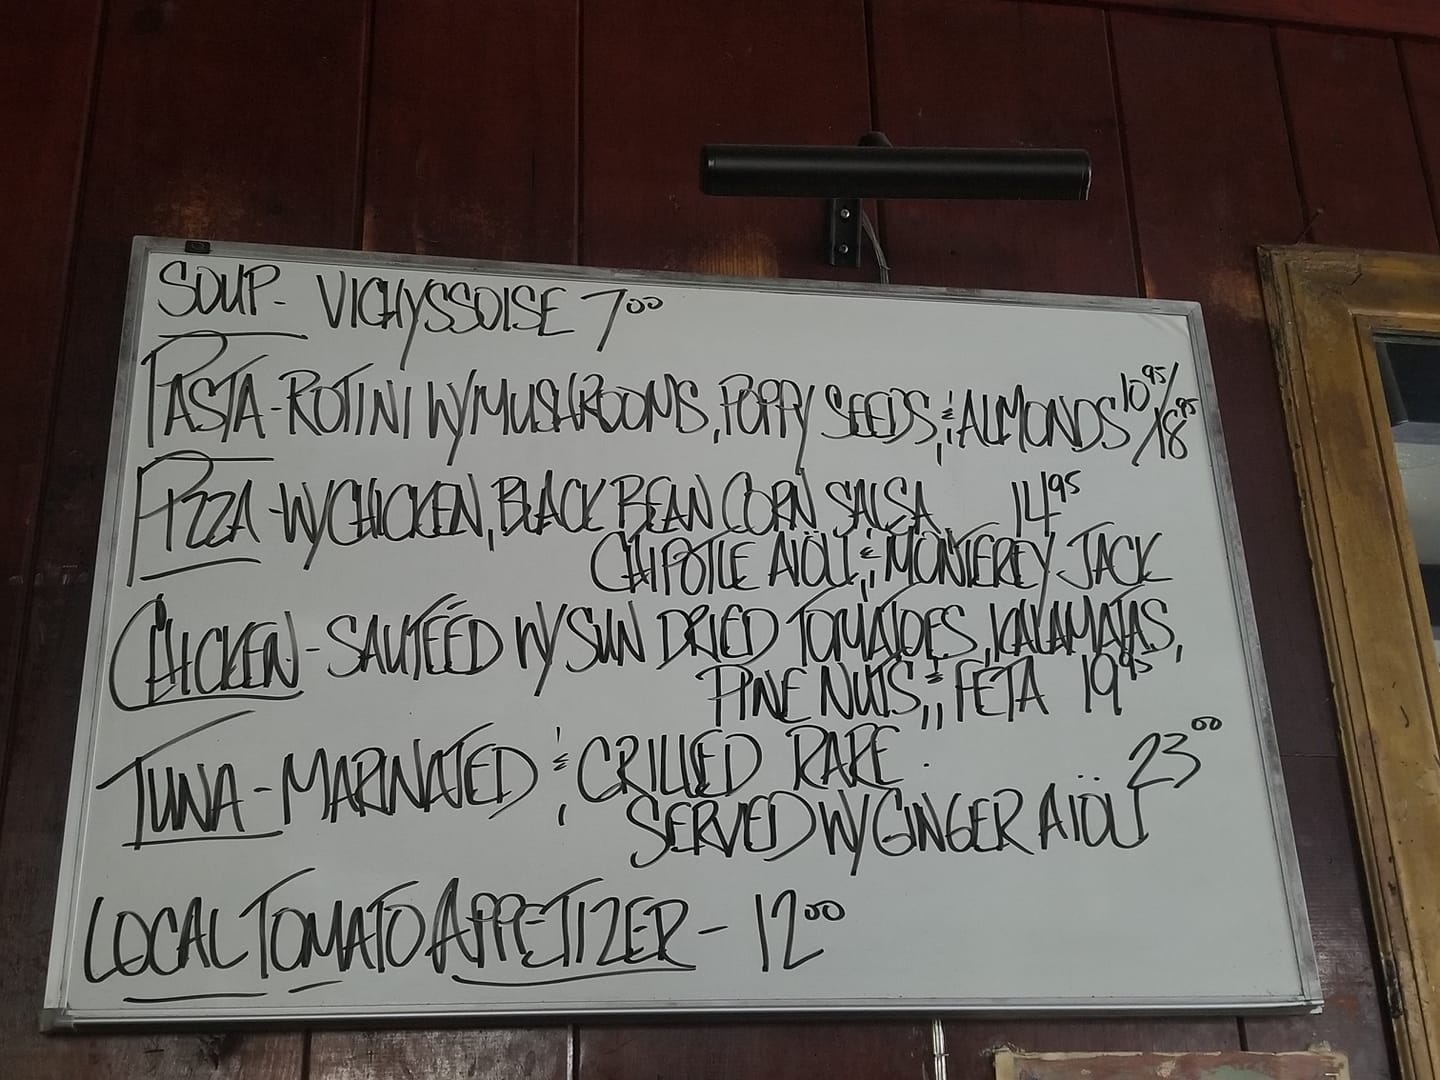 SOUP - VICHYSSOISE 7.00
PASTA - ROTINI W/ MUSHROOMS, POPPY SEEDS, & ALMONDS 10.95/18.95
PIZZA - W/ CHICKEN, BLACK BEAN CORN SALSA 14.95
CHIPOTLE AIOLI, & MONTEREY JACK
CHICKEN - SAUTÉED W/ SUN DRIED TOMATOES, KALAMATAS,
PINE NUTS, & FETA 19.95
TUNA - MARINATED & GRILLED RARE. 23.00
SERVED W/ GINGER AÏOLI
LOCAL TOMATO APPETIZER - 12.00